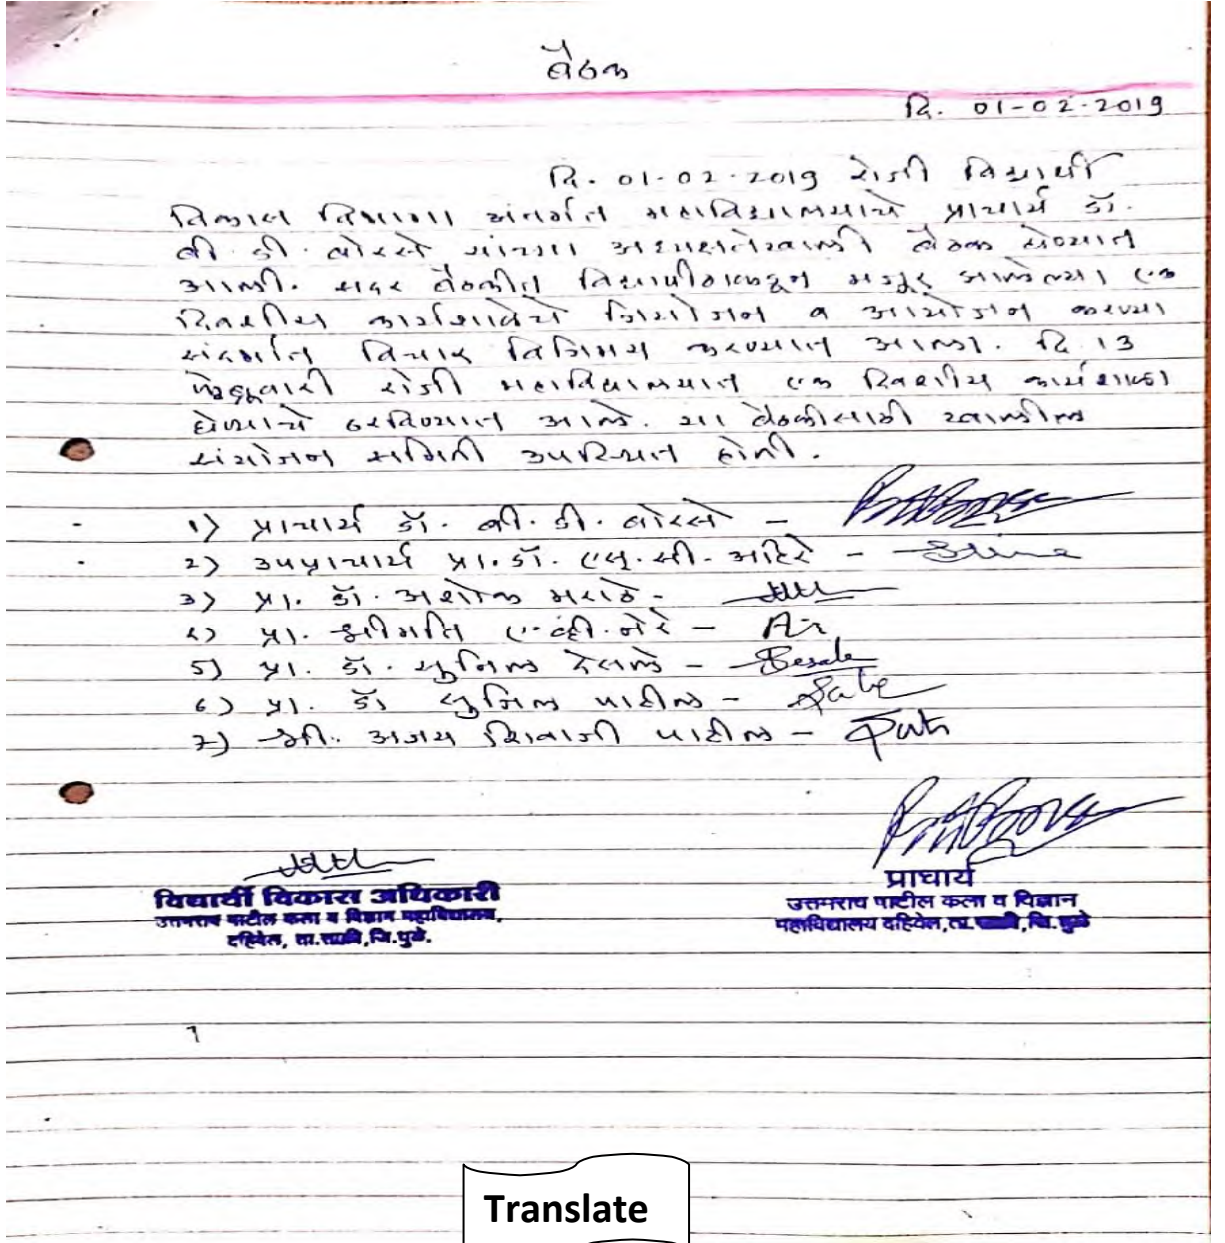 बैठक
दि. 01-02-2019
दि. 01-02-2019 रोजी विद्यार्थी
विकास विभागा अंतर्गत महाविद्यालयाचे प्राचार्य डॉ.
बी. डी. बोरसे यांच्या अध्यक्षतेखाली बैठक घेण्यात
आली. सदर बैठकीत विद्यापीठाकडून मंजूर झालेल्या एक
दिवशीय कार्यशाळेचे नियोजन व आयोजन करण्या
संदर्भात विचार विनिमय करण्यात आला. दि 13
फेब्रुवारी रोजी महाविद्यालयात एक दिवशीय कार्यशाळा
घेण्याचे ठरविण्यात आले. या बैठकीसाठी खालील
संयोजन समिती उपस्थित होती.
1) प्राचार्य डॉ. बी. डी. बोरसे -
2) उपप्राचार्य प्रा. डॉ. एस. सी. अहिरे -
3) प्रा. डॉ. अशोक मराठे -
४) प्रा. श्रीमति ए. व्ही. मोरे -
5) प्रा. डॉ. सुनिल देसले - Besale
६) प्रा. डॉ सुनिल पाटील -
7) श्री. अजय शिवाजी पाटील -
विद्यार्थी विकास अधिकारी
उत्तमराव पाटील कला व विज्ञान महाविद्यालय,
दहिवेल, ता.साक्री, जि.धुळे.
प्राचार्य
उत्तमराव पाटील कला व विज्ञान
महाविद्यालय दहिवेल, ता. साक्री, जि. धुळे
Translate